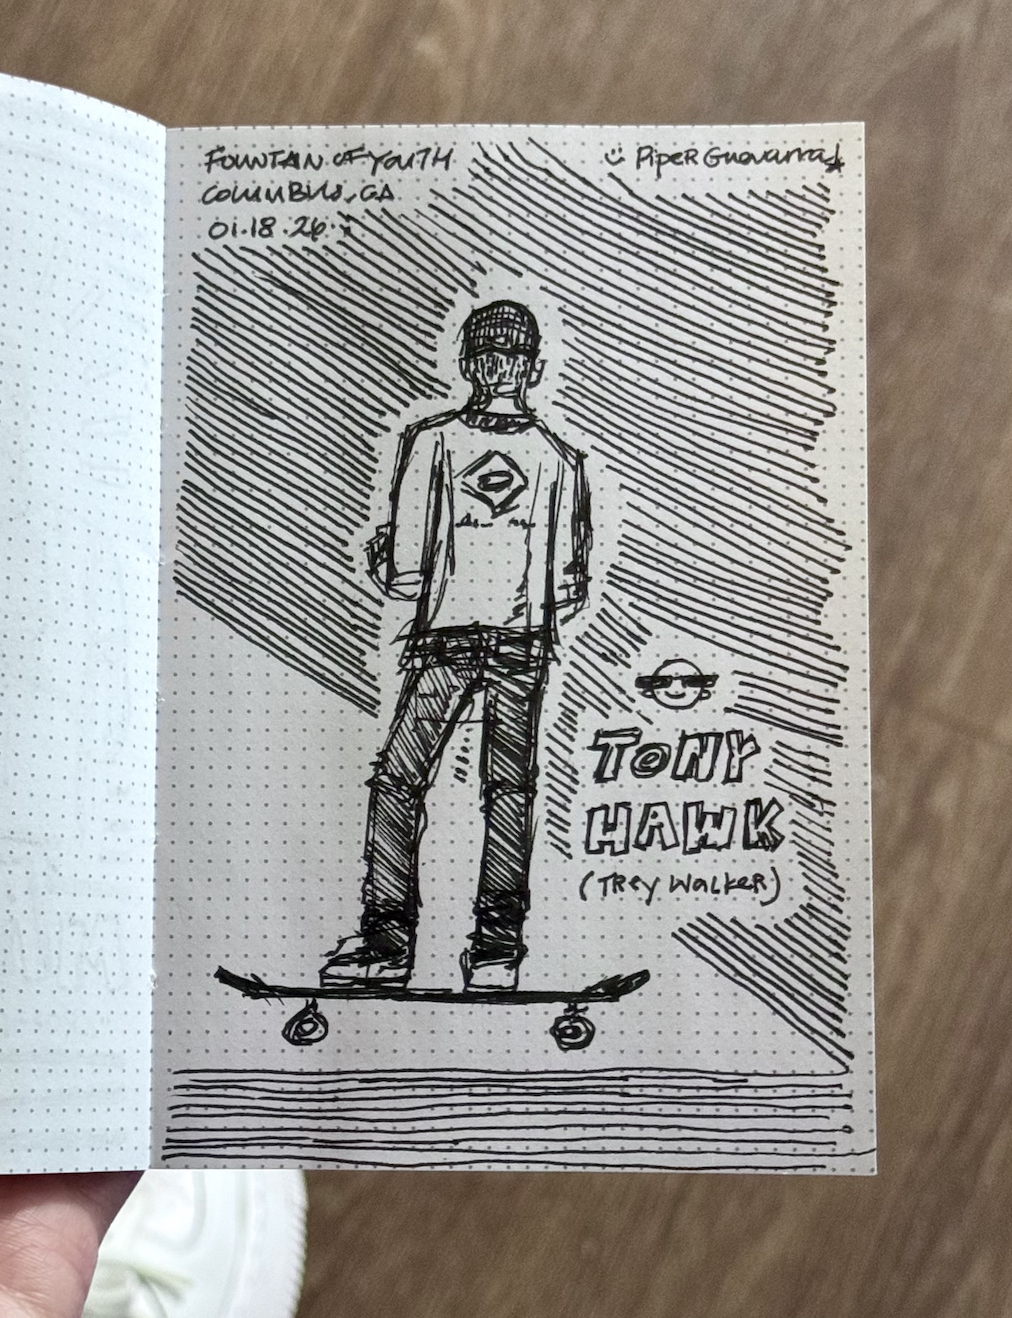 FOUNTAIN OF YOUTH
COLUMBUS, GA
01.18.26
Piper Guevarra
TONY
HAWK
(TREY WALKER)